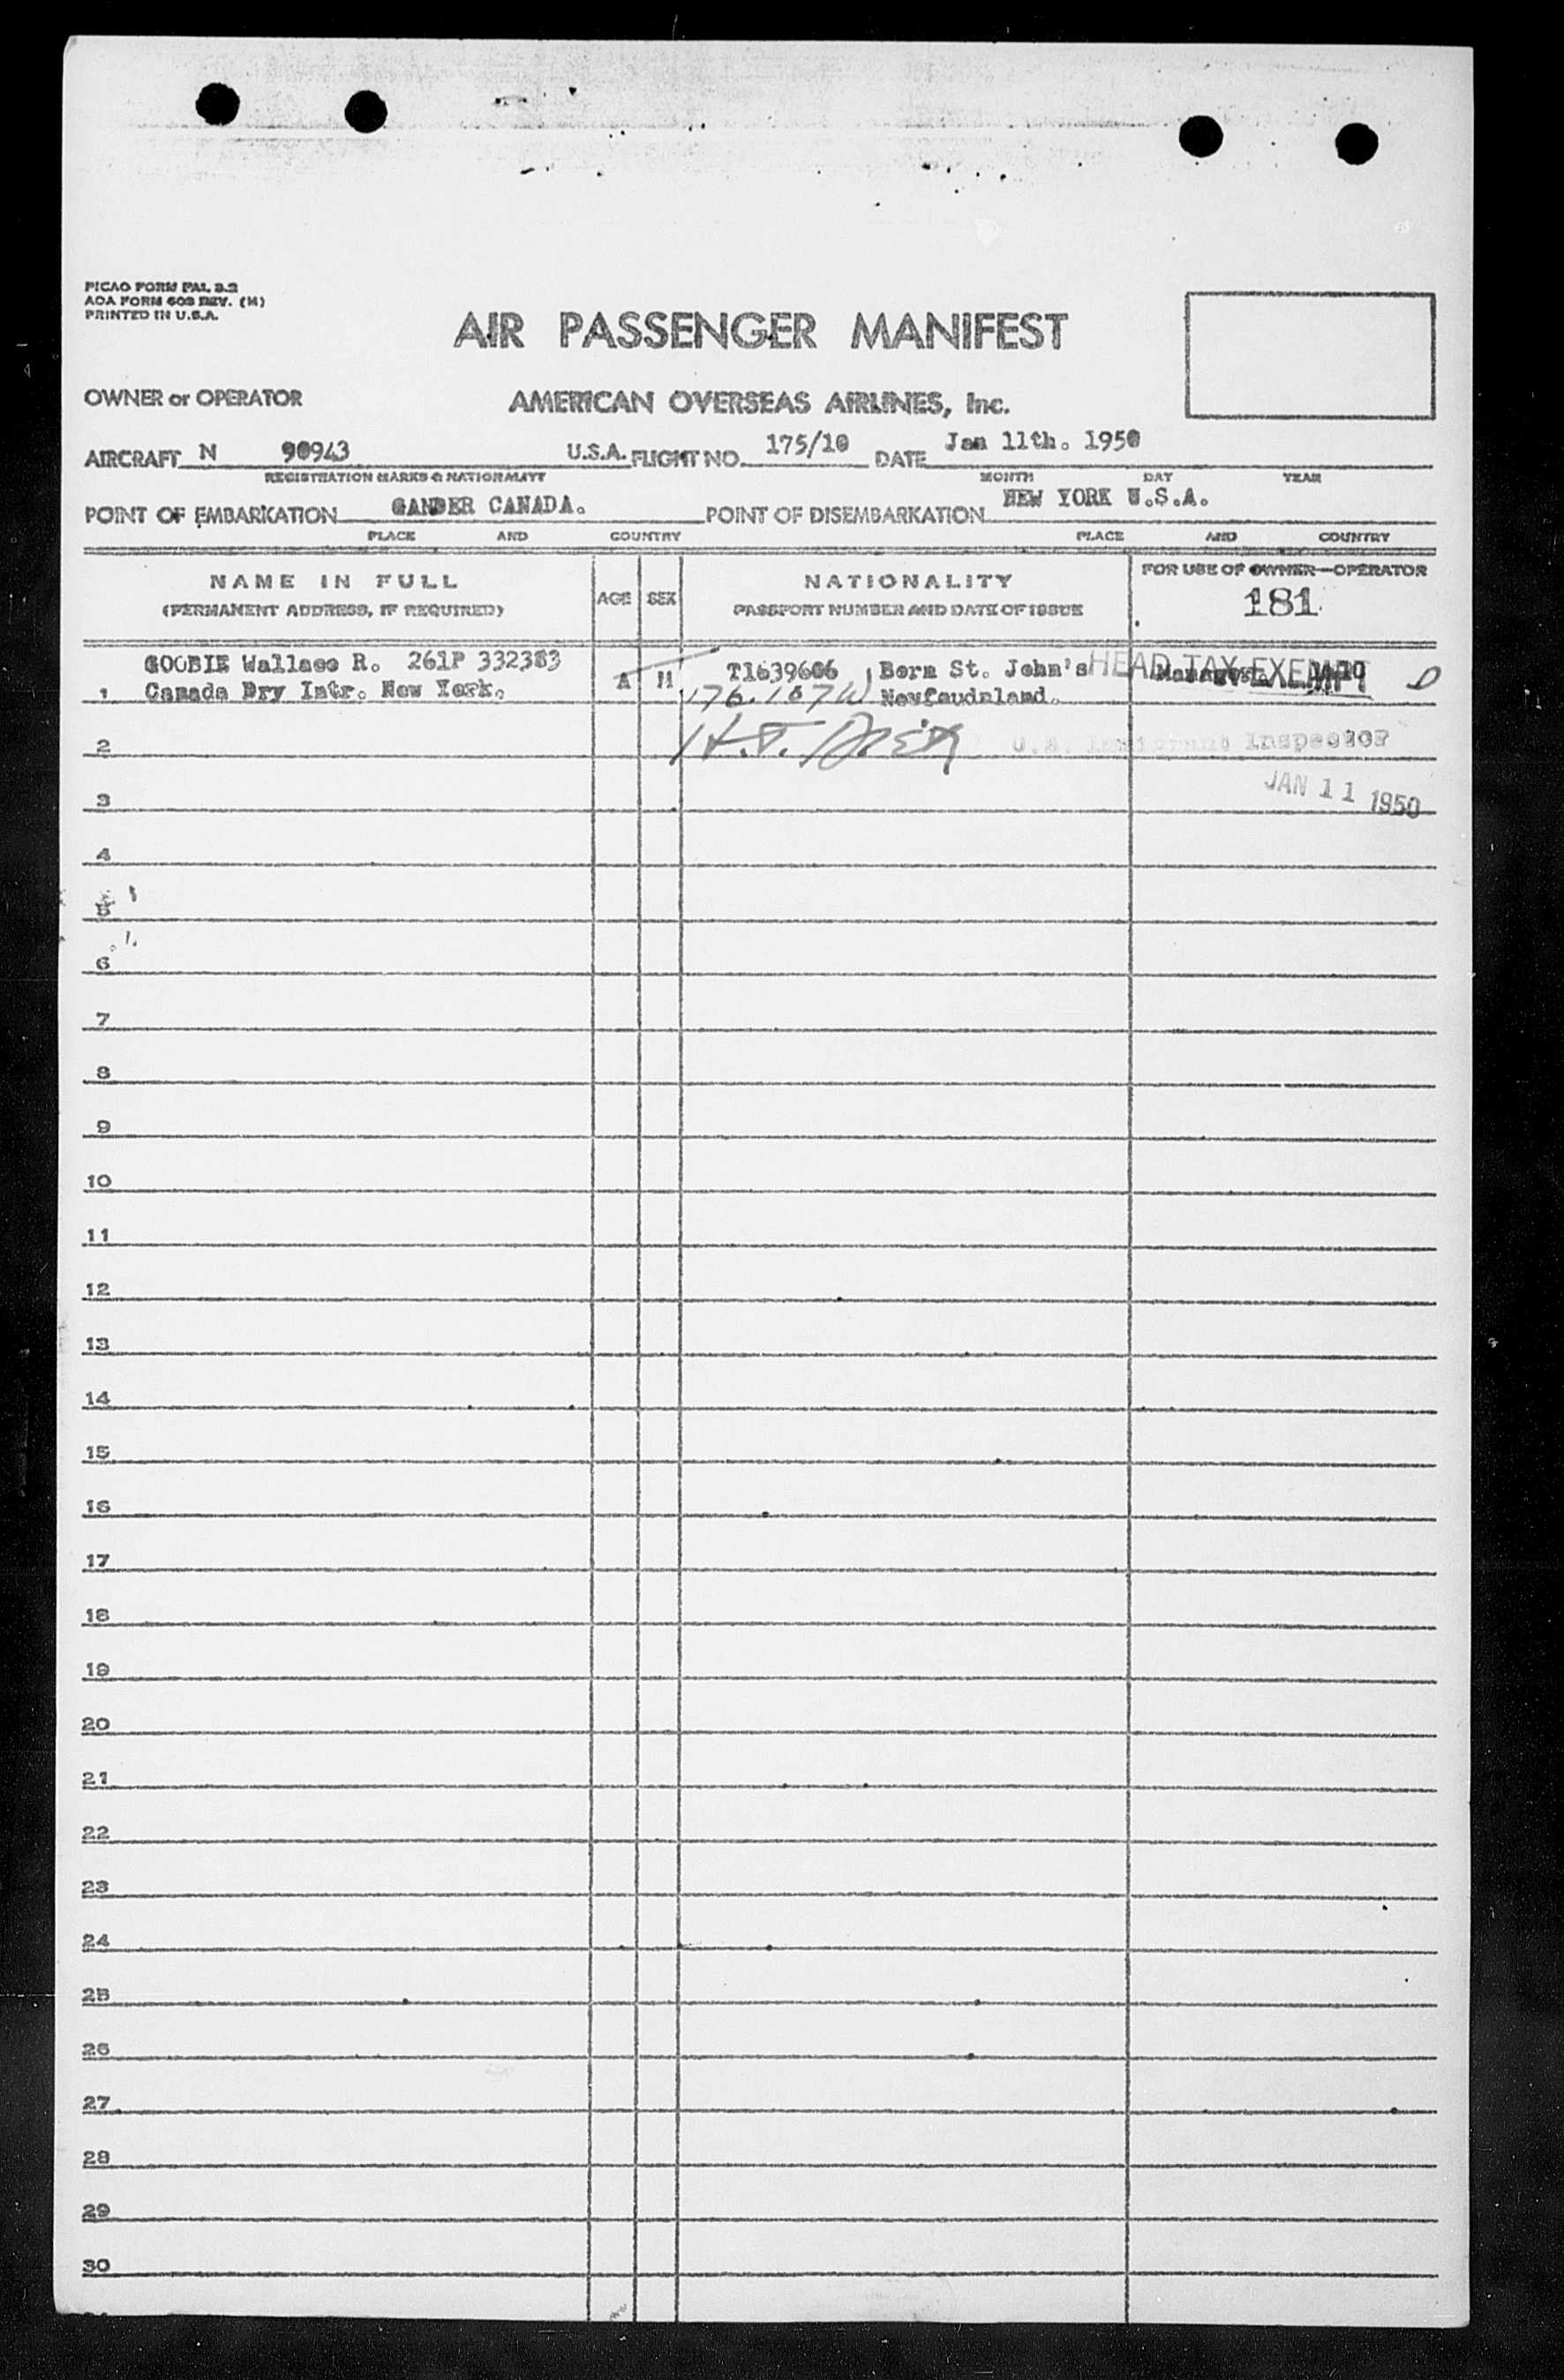 PICAO FORM PAL 3.2
AOA FORM 603 REV. (M)
PRINTED IN U.S.A.
AIR PASSENGER MANIFEST
OWNER or OPERATOR AMERICAN OVERSEAS AIRLINES, Inc.
AIRCRAFT N 90943 U.S.A. FLIGHT NO. 175/10 DATE Jan 11th. 1950
REGISTRATION MARKS & NATIONALITY MONTH DAY YEAR
POINT OF EMBARKATION GANDER CANADA. POINT OF DISEMBARKATION NEW YORK U.S.A.
PLACE AND COUNTRY PLACE AND COUNTRY
NAME IN FULL AGE SEX NATIONALITY FOR USE OF OWNER—OPERATOR
(PERMANENT ADDRESS, IF REQUIRED) PASSPORT NUMBER AND DATE OF ISSUE 181
GOOBIE Wallace R. 261P 332383 A M T1639606 Born St. John's HEAD TAX EXEMPT
1 Canada Dry Intr. New York. Newfoudnland.
2 H.T. U.S. Immigrant Inspector
3 JAN 11 1950
4
5
6
7
8
9
10
11
12
13
14
15
16
17
18
19
20
21
22
23
24
25
26
27
28
29
30